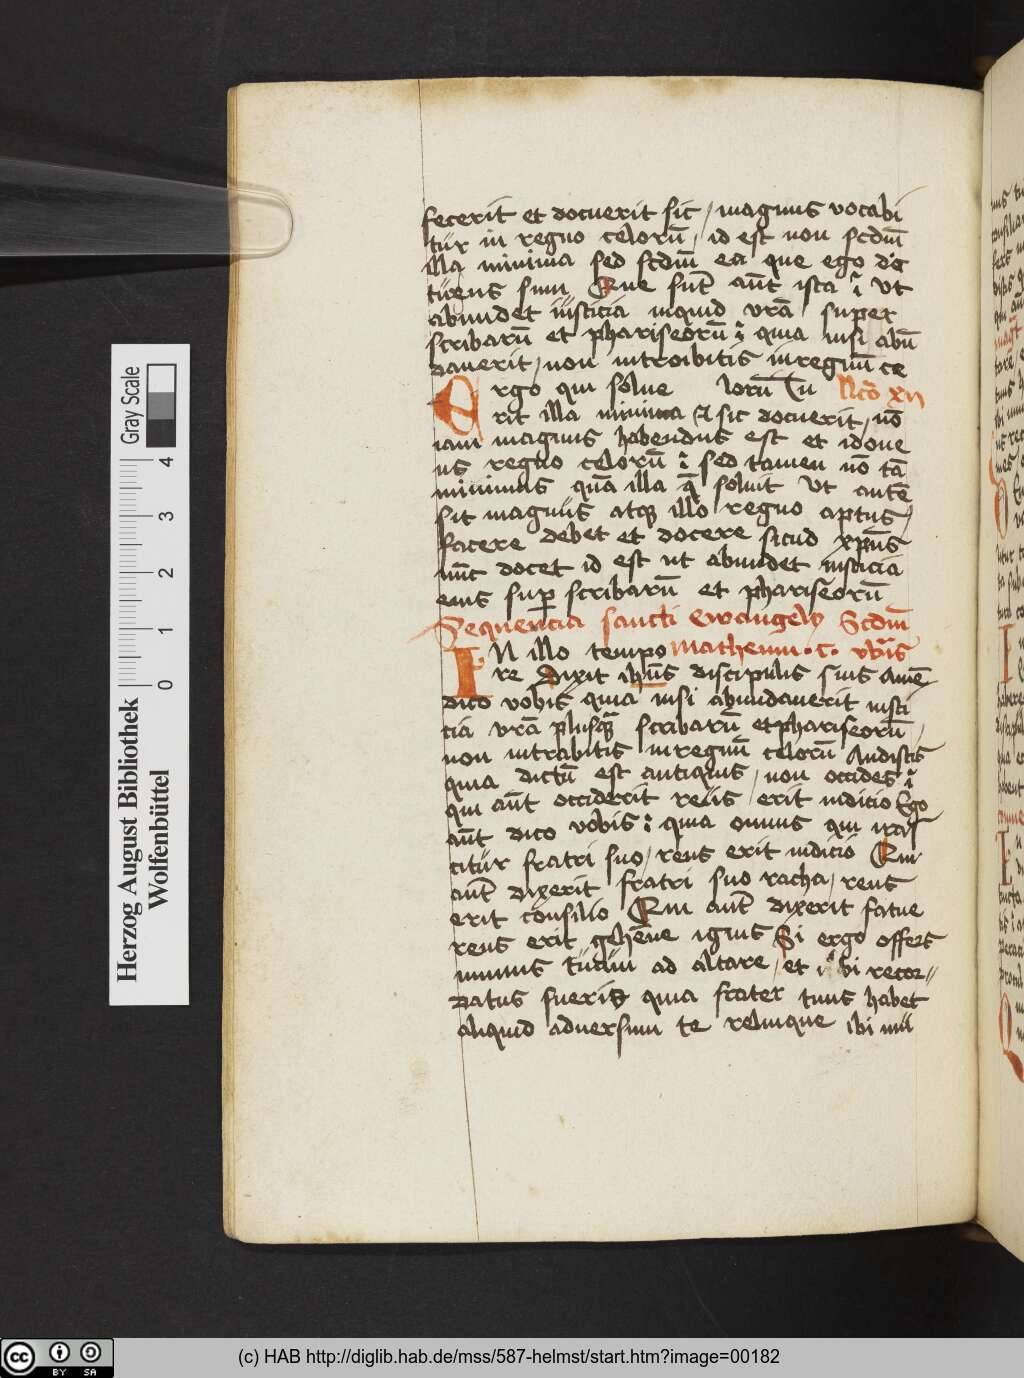 fecerit et docuerit sic / magnus vocabi
tur in regno celorū / id est non scdm̄
illa minima sed scdm̄ ea que ego do
turus sum Que sūt aūt ista : Ut
abundet iusticia inquid vrā super
scribarū et phariseorū : quia nisi abū
dauerit / non introibitis in regnū ce
Ergo qui solue lorū Tu Lc̄o xij
rit illa minima et sic docuerit / nō
iam magnus habendus est et idone
us regno celorū : sed tamen nō tā
minimus quā illa q̄ soluit Ut autē
sit magnus atq illo regno aptus /
facere debet et docere sicud xp̄us
nūc docet id est ut abundet iusticia
eius sup scribarū et phariseorū
Sequencia sancti ewangelij Scdm̄
IN illo tempo Matheum . C . vbīs
re Dixit ihūs discipulis suis Amē
dico vobis quia nisi abundauerit iusti
cia vrā plusq̄ scribarū et phariseorū /
non intrabitis in regnū celorū Audistis
quia dictū est antiquis / non occides :
qui aūt occiderit reus / erit iudicio Ego
aūt dico vobis : quia omnis qui iras
citur fratri suo / reus erit iudicio Qui
aūt dixerit fratri suo racha / reus
erit consilio Qui aūt dixerit fatue
reus erit gehēne ignis Si ergo offers
munus tuum ad altare / et ibi recor=
datus fueris quia frater tuus habet
aliquid aduersum te relinque ibi mu
Herzog August Bibliothek
Wolfenbüttel
Gray Scale
0 1 2 3 4
(c) HAB http://diglib.hab.de/mss/587-helmst/start.htm?image=00182
cc BY SA